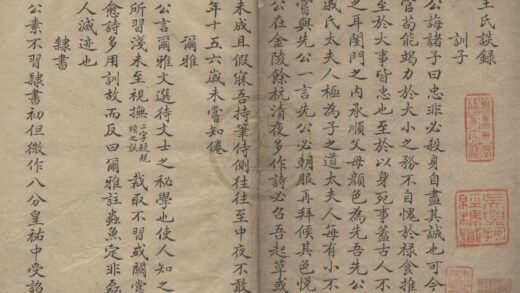 王氏談錄
訓子
公誨諸子曰忠非必殺身自盡其誠也可今
官苟能竭力於大小之務不自愧於祿食推
至於大事皆忠也至於以身死事蓋古人不
之耳閨門之内承順父母顔色為先吾先公
戚氏太夫人極為子之道太夫人每有小不
嘗與先公一言先公必朝服再拜候其色悦
公在金陵餘杭清夜多作詩必召吾起草或
未成且假寐吾持筆侍側往往至中夜不敢
年十五六歲未嘗知倦
爾雅
公言爾雅文選待文士之秘學也使人知之
所習淺未至視撫二字疑規模之誤裁取不習或闕當
愈詩多用訓故而反曰爾雅註蟲魚定非磊
人滅迹也
隸書
公素不習隸書初但微作八分皇祐中受詔